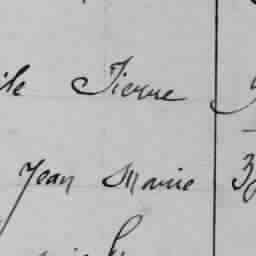 ile Pierre
Jean Marie 3